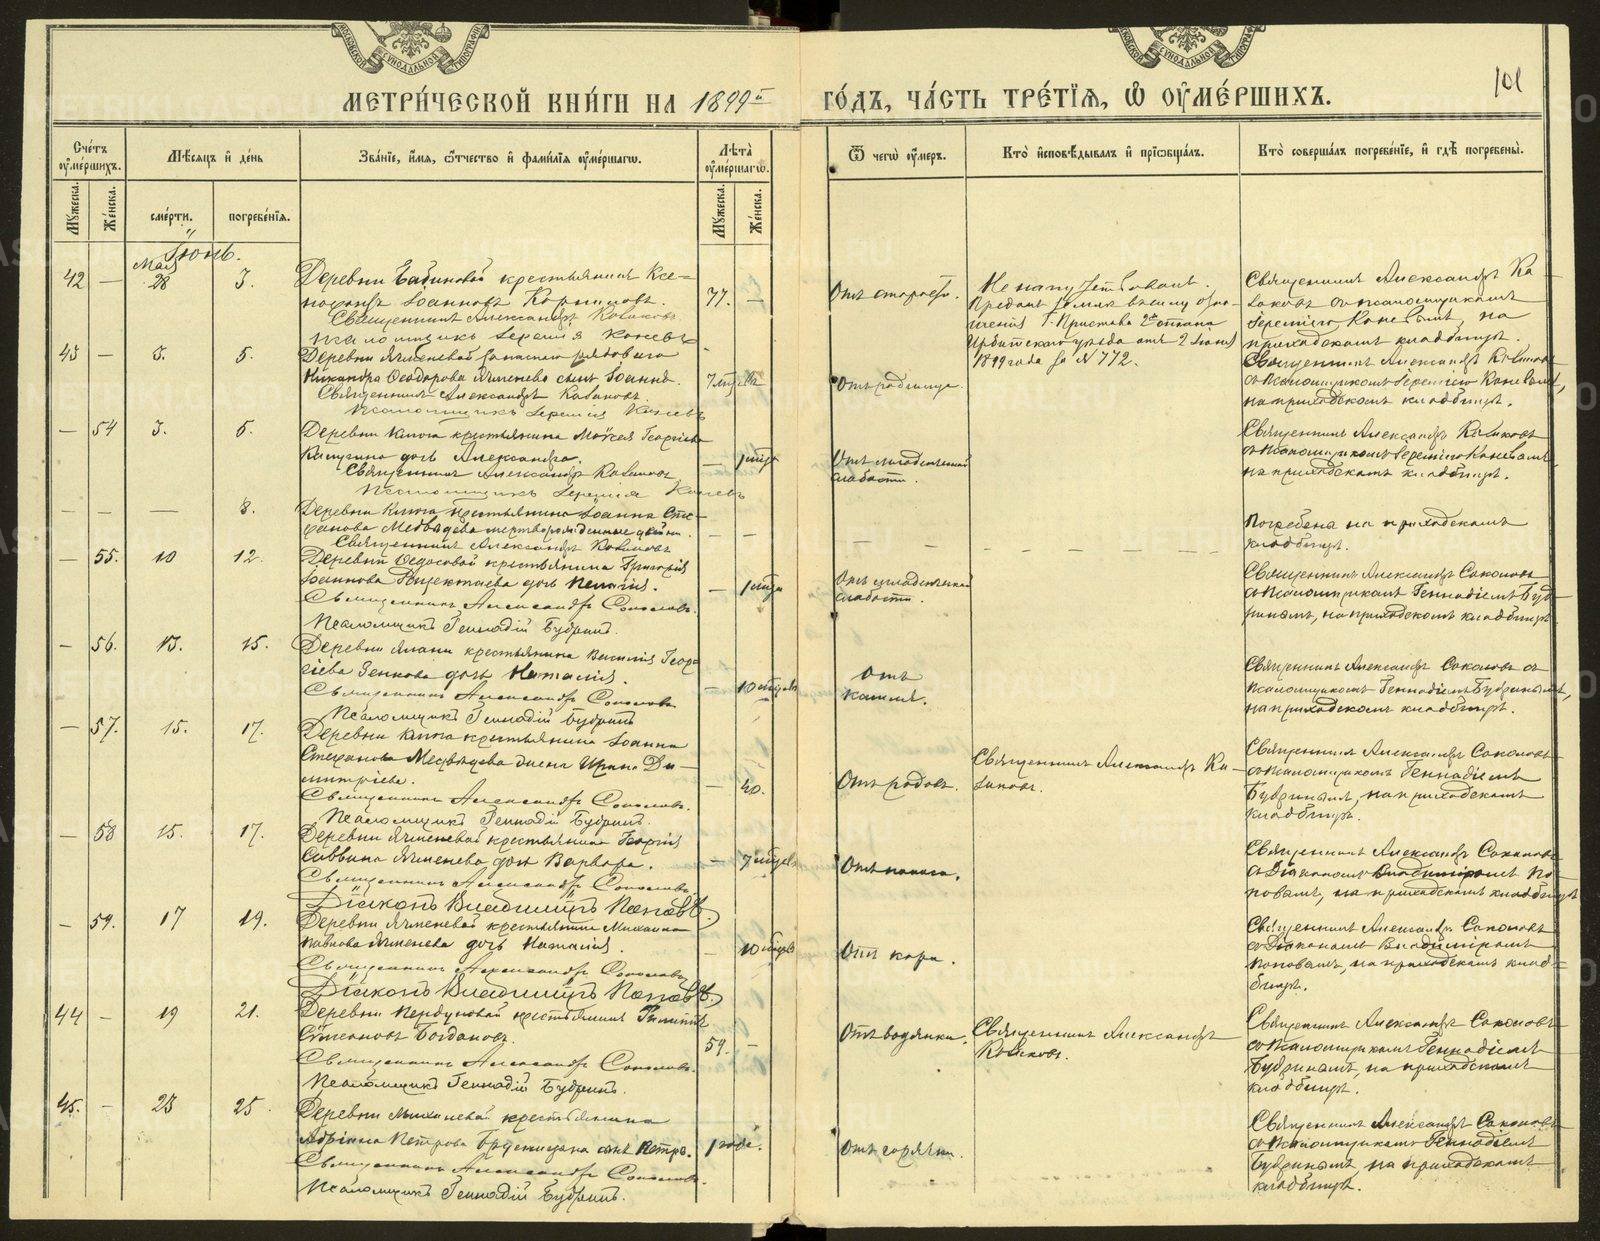 МЕТРИ́ЧЕСКОЙ КНИ́ГИ НА 1899й ГО́ДЪ, ЧА́СТЬ ТРЕ́ТІЯ, Ѡ ОУ҆МЕ́РШИХЪ.
101
Сче́тъ оу҆ме́ршихъ.
Мѣ́сяцъ и҆ де́нь
Зва́ніе, и҆́мя, ѻ҆́тчество и҆ фами́лія оу҆ме́ршагѡ.
Лѣ́та оу҆ме́ршагѡ.
Ѿ чегѡ̀ оу҆́меръ.
Кто̀ и҆сповѣ́дывалъ и҆ прїѡбща́лъ.
Кто̀ соверша́лъ погребе́ніе, и҆ гдѣ̀ погребены̀.
Мꙋ́жеска.
Же́нска.
сме́рти.
погребе́нїѧ.
Мꙋ́жеска.
Же́нска.
Іюнь.
42 — Мая 28 3.
Деревни крестьянинъ Ксе-
нофонтъ Іоанновъ Корниловъ.
77. —
Отъ старости.
Священникъ Александръ Казаковъ
Псаломщикъ Іеремія Коневъ
Предан земле
Г. Пристава 2го стана
Ирбитскаго уезда отъ 2 Іюня
1899 года за N 772.
Священникъ Александръ Ка-
заковъ съ псаломщикомъ
Іереміею Коневымъ, на
приходскомъ кладбище.
43 — 3. 5.
Деревни Ячменевой запаснаго рядоваго
Никандра Ѳеодорова Ячменева сынъ Іоаннъ.
Священникъ Александръ Казаковъ.
Псаломщикъ Іеремія Коневъ
Отъ родимца.
Священникъ Александръ Казаковъ
съ псаломщикомъ Іереміею Коневымъ,
на приходскомъ кладбище.
— 54 3. 5.
Деревни Ключа крестьянина Моѵсея Георгіева
дочь Александра.
Священникъ Александръ Казаковъ
Псаломщикъ Іеремія Коневъ
— 1 мѣся
Отъ младенческой
слабости.
Священникъ Александръ Казаковъ
съ псаломщикомъ Іереміею Коневымъ,
на приходскомъ кладбище.
— — — 8.
Деревни Ключа крестьянина Іоанна Сте-
фанова Медведева мертворожденные двойни.
Священникъ Александръ Казаковъ
— —
Погребена на приходскомъ
кладбище.
— 55. 10 12.
Деревни Ѳедосовой крестьянина Григорія
Іоаннова дочь Пелагія.
Священникъ Александръ Соколовъ.
Псаломщикъ Геннадій Бубринъ.
— 1 мѣся
Отъ младенческой
слабости.
Священникъ Александръ Соколовъ
съ псаломщикомъ Геннадіемъ Буб-
ринымъ, на приходскомъ кладбище.
— 56. 13. 15.
Деревни крестьянина Василія Геор-
гіева Зенкова дочь Наталія.
Священникъ Александръ Соколовъ
Псаломщикъ Геннадій Бубринъ
— 10 мѣсяцевъ
Отъ
кашля.
Священникъ Александръ Соколовъ съ
псаломщикомъ Геннадіемъ Бубринымъ,
на приходскомъ кладбище.
— 57. 15. 17.
Деревни Ключа крестьянина Іоанна
Стефанова Медведева жена Ирина Ди-
митріева.
Священникъ Александръ Соколовъ.
Псаломщикъ Геннадій Бубринъ.
— 40.
Отъ родовъ.
Священникъ Александръ Ка-
заковъ.
Священникъ Александръ Соколовъ
съ псаломщикомъ Геннадіемъ
Бубринымъ, на приходскомъ
кладбище.
— 58 15. 17.
Деревни Ячменевой крестьянина Георгія
Саввина Ячменева дочь Варвара.
Священникъ Александръ Соколовъ.
Діаконъ Владиміръ Поповъ.
— 7 мѣсяцевъ
Отъ поноса.
Священникъ Александръ Соколовъ
съ Діакономъ Владиміромъ По-
повымъ, на приходскомъ кладбище
— 59. 17 19.
Деревни Ячменевой крестьянина Михаила
Павлова Ячменева дочь Наталія.
Священникъ Александръ Соколовъ
Діаконъ Владиміръ Поповъ.
— 10 мѣсяцевъ
Отъ кори.
Священникъ Александръ Соколовъ
съ Діакономъ Владиміромъ
Поповымъ, на приходскомъ клад-
бище.
44 — 19 21.
Деревни крестьянинъ Филиппъ
Богдановъ.
Священникъ Александръ Соколовъ.
Псаломщикъ Геннадій Бубринъ.
59. —
Отъ водянки.
Священникъ Александръ
Казаковъ.
Священникъ Александръ Соколовъ
съ псаломщикомъ Геннадіемъ
Бубринымъ, на приходскомъ
кладбище.
45. — 23 25.
Деревни Михалевой крестьянина
Адріана Петрова сынъ Петръ.
Священникъ Александръ Соколовъ.
Псаломщикъ Геннадій Бубринъ.
1 года.
Отъ горячки.
Священникъ Александръ Соколовъ
съ псаломщикомъ Геннадіемъ
Бубринымъ, на приходскомъ
кладбище.